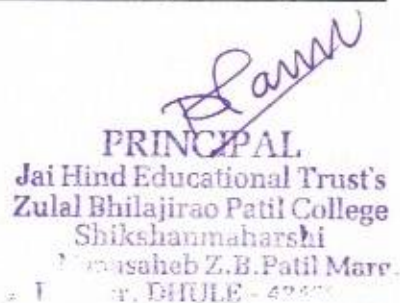 PRINCIPAL
Jai Hind Educational Trust's
Zulal Bhilajirao Patil College
Shikshanmaharshi
Z.B.Patil Marg.
DHULE -